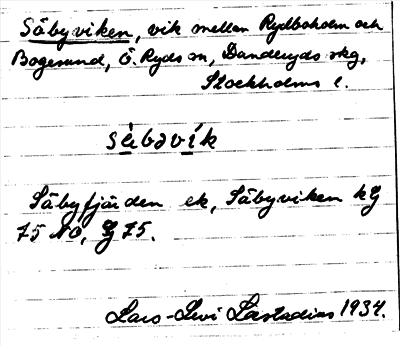 Säbyviken, vik mellan Rydboholm och
Bogesund, Ö. Ryds sn, Danderyds skg,
Stockholms l.
sä̀bəvík
Säbyfjärden ek, Säbyviken kG
75 NO, G 75.
Lars-Levi Læstadius 1934.